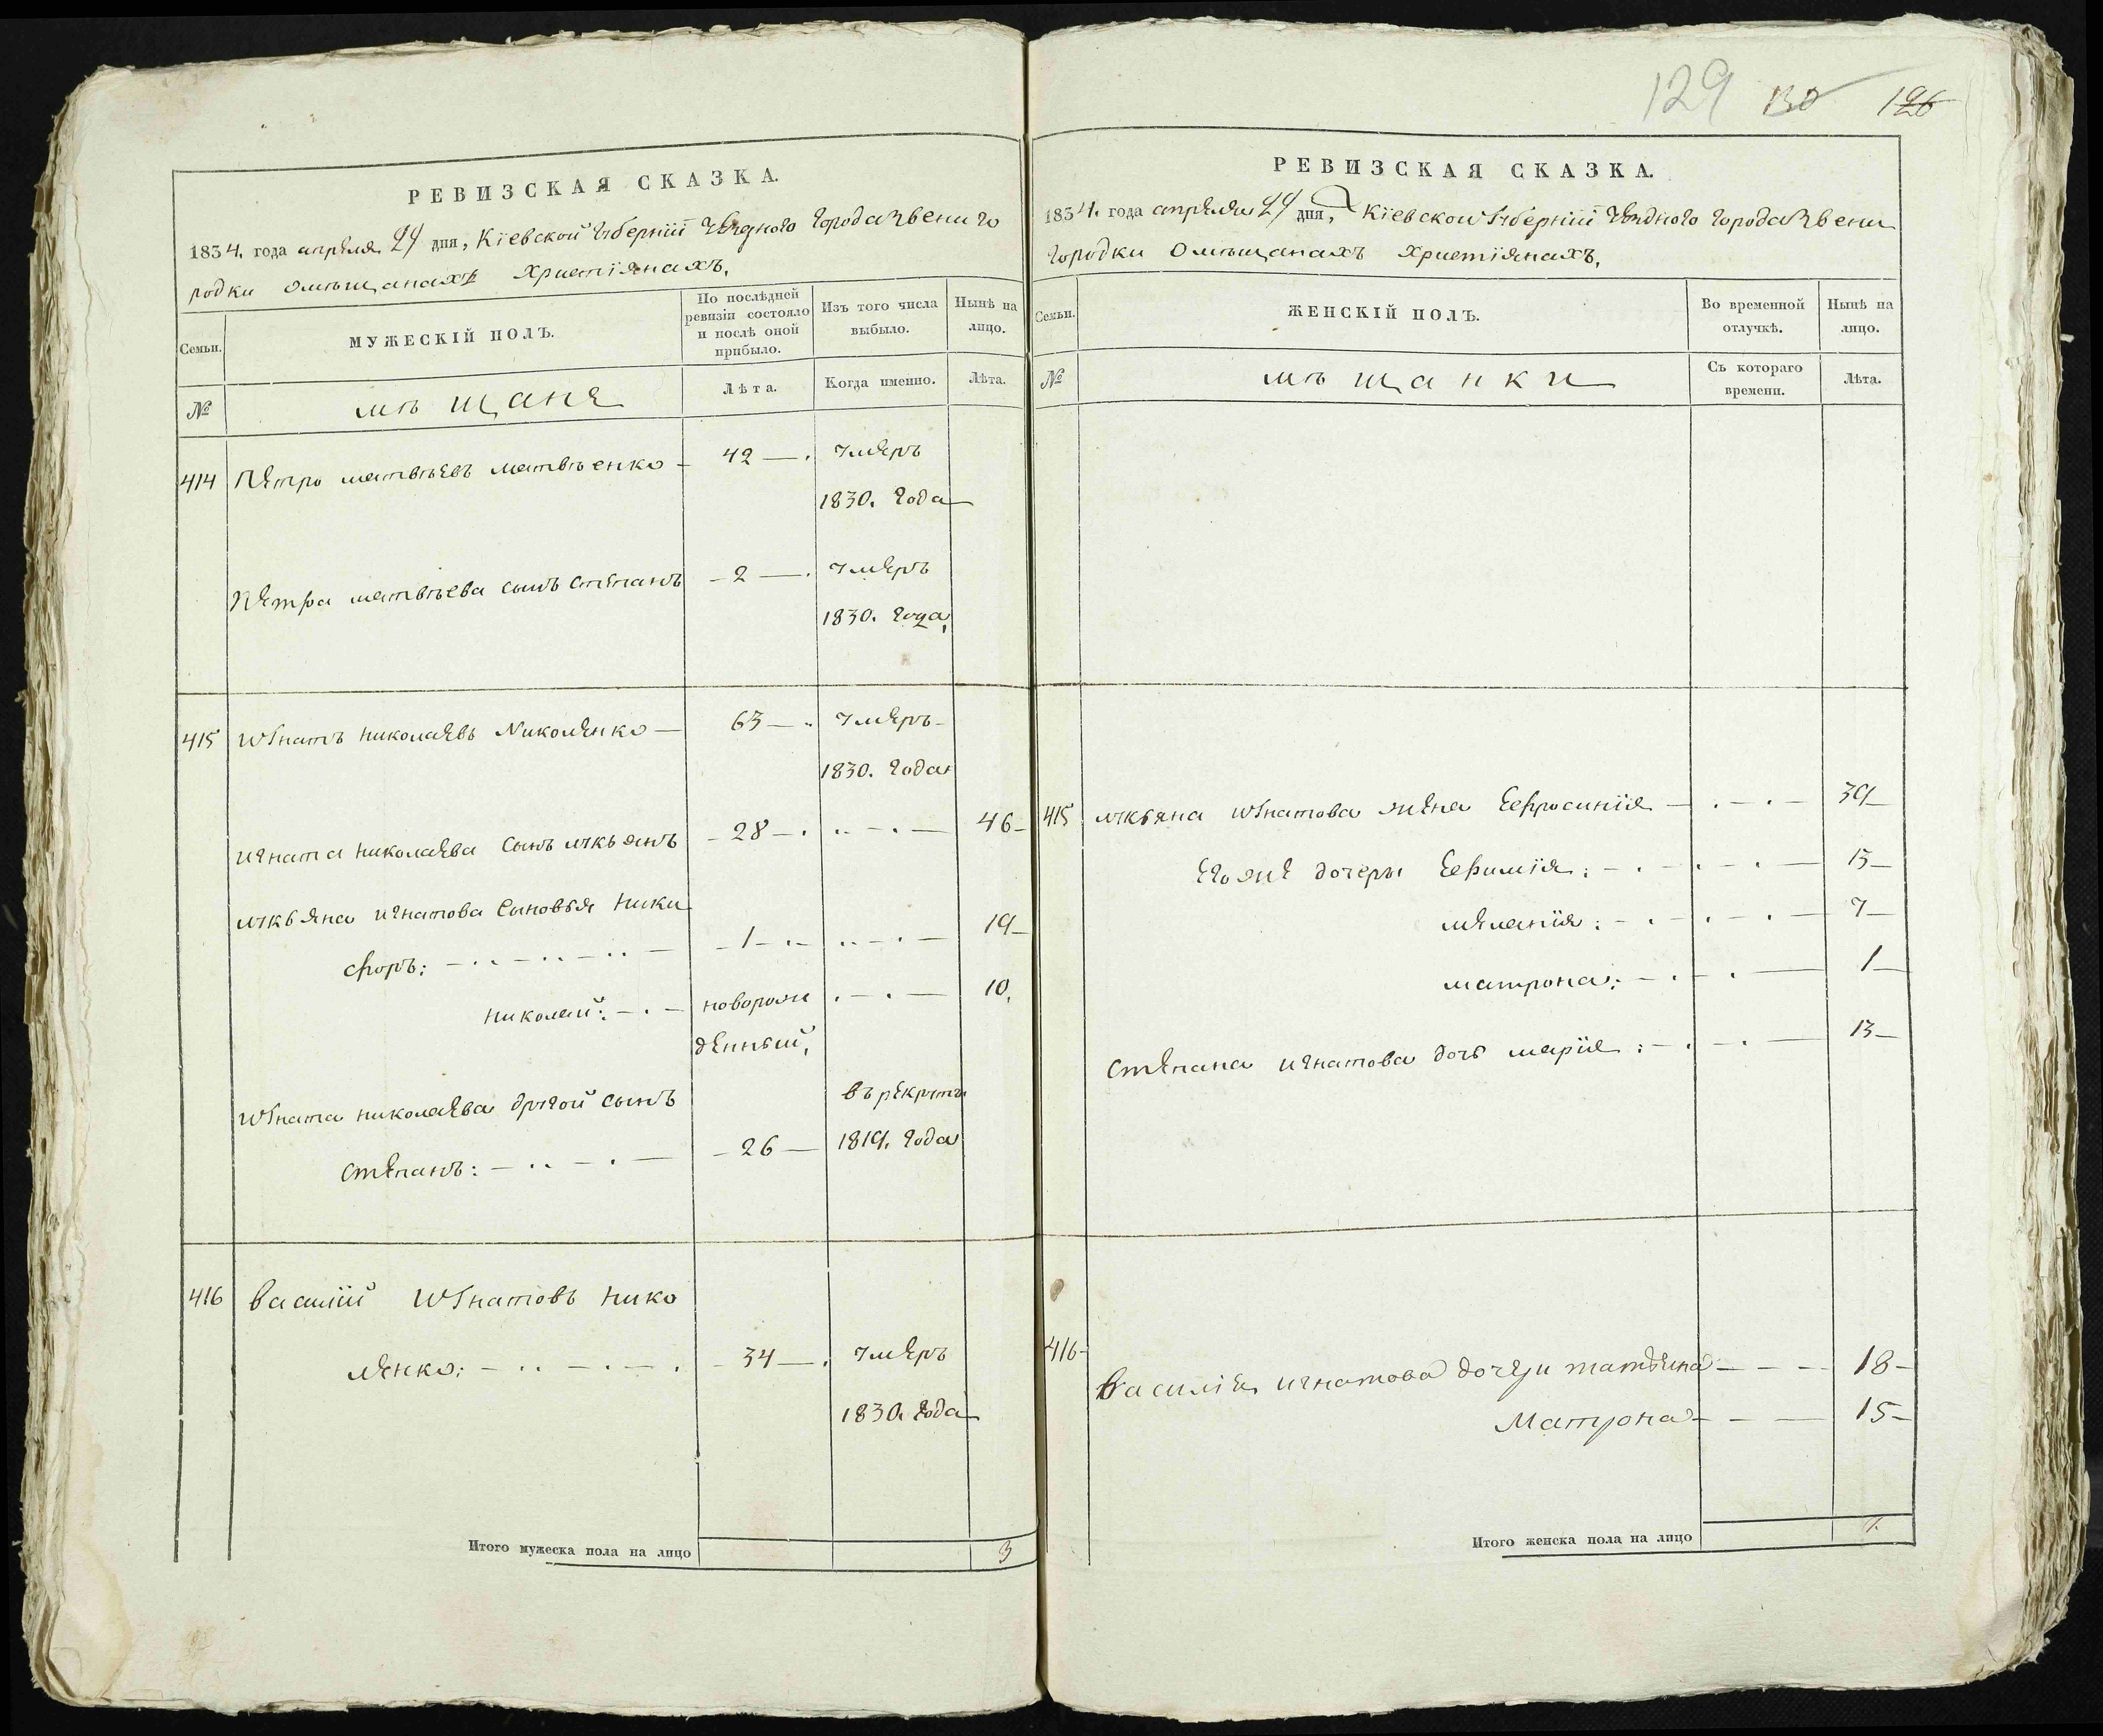 129 130 126
РЕВИЗСКАЯ СКАЗКА.
1834. года апреля 24 дня, Кіевской губерніи уезднаго города Звениго
родки о мѣщанахъ христіянахъ.
Семьи.
МУЖЕСКІЙ ПОЛЪ.
По послѣдней ревизіи состояло и послѣ оной прибыло.
Изъ того числа выбыло.
Нынѣ на лицо.
№
мѣщане
Лѣта.
Когда именно.
Лѣта.
414 Петро матвѣевъ матвѣенко – 42 —. умеръ
1830. года
Петра матвѣева сынъ степанъ – 2 —. умеръ
1830. года,
415 Игнатъ николаевъ Николенко — 63 — умеръ
1830. года
игната николаева сынъ лукьянъ – 28 – 46
лукьяна игнатова сыновья ники
форъ: – 1 – 19
николай: новорож 10.
денный,
Игната николаева другой сынъ въ рекруты
степанъ: – 26 — 1819. года
416 василій Игнатовъ нико
ленко: – 34 —. умеръ
1830. года
Итого мужеска пола на лицо 3
РЕВИЗСКАЯ СКАЗКА.
1834. года апреля 24 дня, Кіевской губерніи уезднаго города Звени
городки о мѣщанахъ христіянахъ.
Семьи.
ЖЕНСКІЙ ПОЛЪ.
Во временной отлучкѣ.
Нынѣ на лицо.
№
мѣщанки
Съ котораго времени.
Лѣта.
415 лукьяна игнатова жена Ефросинія — 39
его же дочеры Ефимія: 13
меланія: 7
матрона: 1
степана игнатова дочь марія: 13
416 василія игнатова дочери татьяна – 18
Матрона – 15
Итого женска пола на лицо 7.